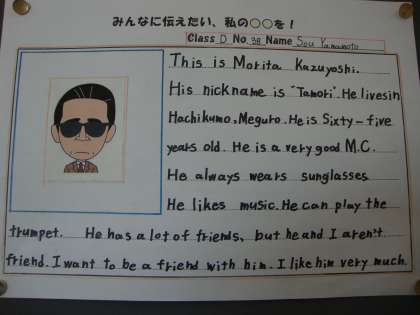 みんなに伝えたい、私の○○を！
Class D No 38 Name Sou Yamamoto
This is Morita Kazuyoshi.
His nickname is "Tamori". He livesin
Hachikumo, Meguro. He is Sixty-five
years old. He is a very good M.C.
He always wears sunglasses
He likes music. He can play the
trumpet. He has a lot of friends, but he and I aren't
friend. I want to be a friend with him. I like him very much.